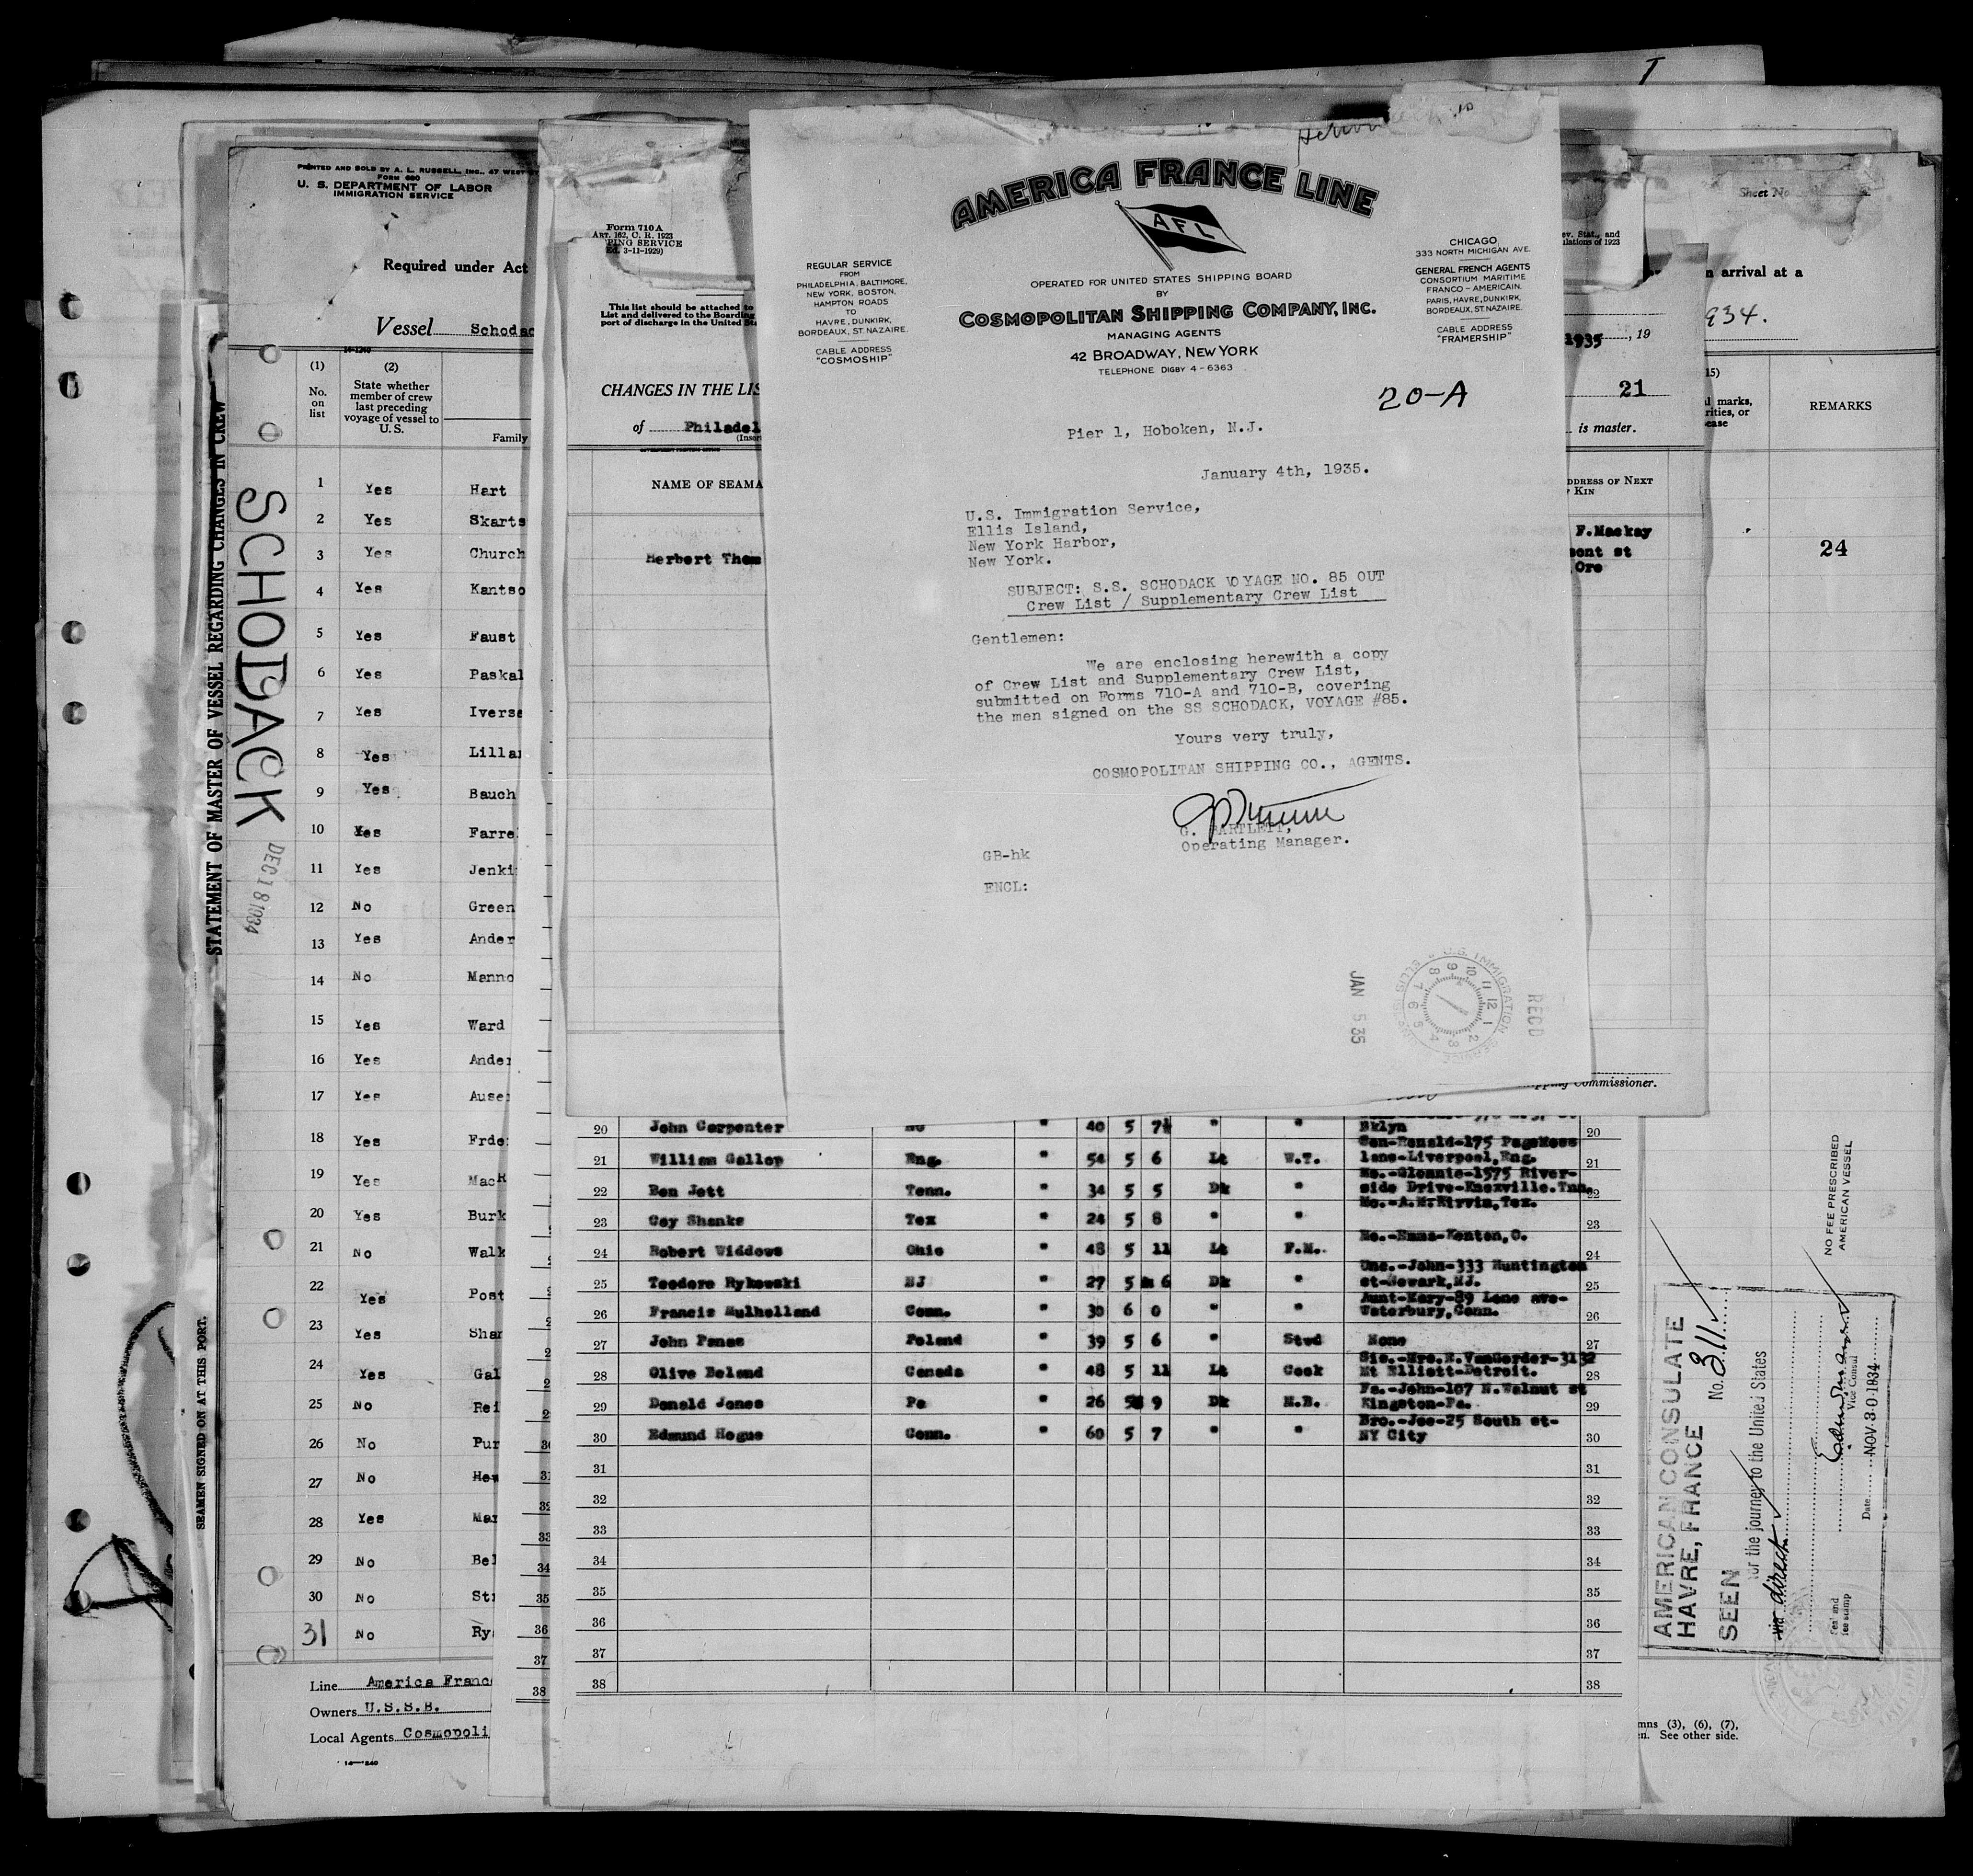 T
PRINTED AND SOLD BY A. L. RUSSELL, INC., 47 WEST ST
FORM 680
U. S. DEPARTMENT OF LABOR
IMMIGRATION SERVICE
Required under Act
Vessel Schodac
(1) (2)
No. on list
State whether member of crew last preceding voyage of vessel to U. S.
Family
1 Yes Hart
2 Yes Skarts
3 Yes Church
4 Yes Kantso
5 Yes Faust
6 Yes Paskal
7 Yes Iverse
8 Yes Lilla
9 Yes Bauch
10 Yes Farre
11 Yes Jenki
12 No Green
13 Yes Ander
14 No Manno
15 Yes Ward
16 Yes Ander
17 Yes Auser
18 Yes Frde
19 Yes MacR
20 Yes Burk
21 No Walk
22 Yes Post
23 Yes Shar
24 Yes Gal
25 No Rei
26 No Pur
27 No Hew
28 Yes Mar
29 No Bel
30 No St
31 No Ry
Line America Franc
Owners U.S.S.B.
Local Agents Cosmopoli
STATEMENT OF MASTER OF VESSEL REGARDING CHANGES IN CREW
SCHODACK
DEC 18 1934
SEAMEN SIGNED ON AT THIS PORT.
Form 710 A
ART. 162, C. R. 1923
PING SERVICE
Ed. 3-11-1929)
This list should be attached to
List and delivered to the Boarding
port of discharge in the United Sta
CHANGES IN THE LIS
of Philadel
NAME OF SEAMA
Herbert Thom
AMERICA FRANCE LINE
AFL
REGULAR SERVICE
FROM
PHILADELPHIA, BALTIMORE,
NEW YORK, BOSTON,
HAMPTON ROADS
TO
HAVRE, DUNKIRK,
BORDEAUX, ST. NAZAIRE.
CABLE ADDRESS
"COSMOSHIP"
OPERATED FOR UNITED STATES SHIPPING BOARD
BY
COSMOPOLITAN SHIPPING COMPANY, INC.
MANAGING AGENTS
42 BROADWAY, NEW YORK
TELEPHONE DIGBY 4-6363
CHICAGO
333 NORTH MICHIGAN AVE.
GENERAL FRENCH AGENTS
CONSORTIUM MARITIME
FRANCO-AMERICAIN.
PARIS, HAVRE, DUNKIRK,
BORDEAUX, ST. NAZAIRE.
CABLE ADDRESS
"FRAMERSHIP"
20-A
Pier 1, Hoboken, N.J.
January 4th, 1935.
U.S. Immigration Service,
Ellis Island,
New York Harbor,
New York.
SUBJECT: S.S. SCHODACK VOYAGE NO. 85 OUT
Crew List / Supplementary Crew List
Gentlemen:
We are enclosing herewith a copy
of Crew List and Supplementary Crew List,
submitted on Forms 710-A and 710-B, covering
the men signed on the SS SCHODACK, VOYAGE #85.
Yours very truly,
COSMOPOLITAN SHIPPING CO., AGENTS.
G. BARTLETT,
Operating Manager.
GB-hk
ENCL:
JAN 5 35
U.S. IMMIGRATION SERVICE
RECD
ev. Stat., and
ulations of 1923
1935, 19
21
is master.
DDRESS OF NEXT
KIN
F. Mackay
mont st
Ore
pping Commissioner.
Sheet No
n arrival at a
934.
REMARKS
24
20 John Carpenter " 40 5 7½ " " Bklyn 20
21 William Gallop Eng. " 54 5 6 Lt W.T. Son-Ronald-175 PageMoss lane-Liverpool, Eng. 21
22 Ben Jett Tenn. " 34 5 5 Dk " Mo.-Glennie-1575 River-side Drive-Knoxville. Tnn. 22
23 Coy Shanks Tex " 24 5 8 " " 23
24 Robert Widdows Ohio " 48 5 11 Lt F.M. Mo.-Emma-Kenton, O. 24
25 Teodore Rykowski NJ " 27 5 6 Dk " Unc.-John-333 Huntington st-Newark, NJ. 25
26 Francis Mulholland Conn. " 30 6 0 " " Aunt-Mary-89 Lane ave-Waterbury, Conn. 26
27 John Panas Poland " 39 5 6 " Stwd None 27
28 Olive Beland Canada " 48 5 11 Lt Cook Sis.-Mrs. R. VanGorder-3132 Mt Elliott-Detroit. 28
29 Donald Jones Pa " 26 5 9 Dk M.B. Fa.-John-107 N. Walnut st Kingston-Pa. 29
30 Edmund Hogue Conn. " 60 5 7 " " Bro.-Joe-25 South st-NY City 30
31 31
32 32
33 33
34 34
35 35
36 36
37 37
38 38
NO FEE PRESCRIBED
AMERICAN VESSEL
AMERICAN CONSULATE
HAVRE, FRANCE No. 311
SEEN
for the journey to the United States
via direct
Vice Consul
Date NOV. 30 1934
fee stamp
mns (3), (6), (7),
en. See other side.